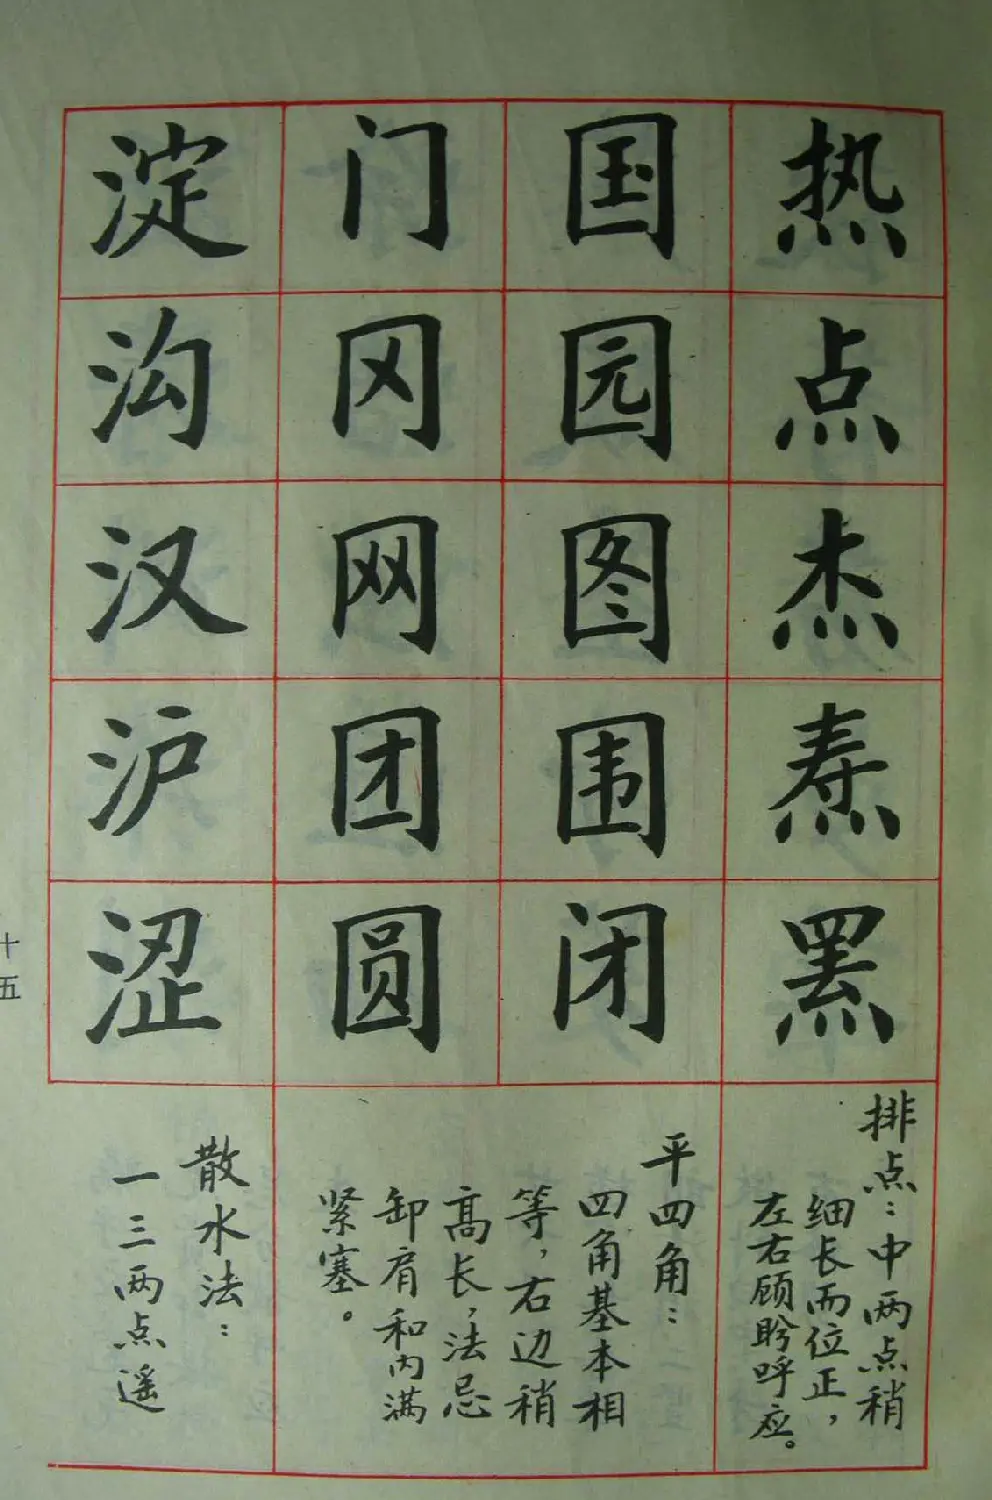 热点杰焘黑
排点：中两点稍
细长而位正，
左右顾盼呼应。
国园图围闭
门冈网团圆
平四角：
四角基本相
等，右边稍
高长，法忌
卸肩和内满
紧塞。
淀沟汉沪涩
散水法：
一三两点遥
十五